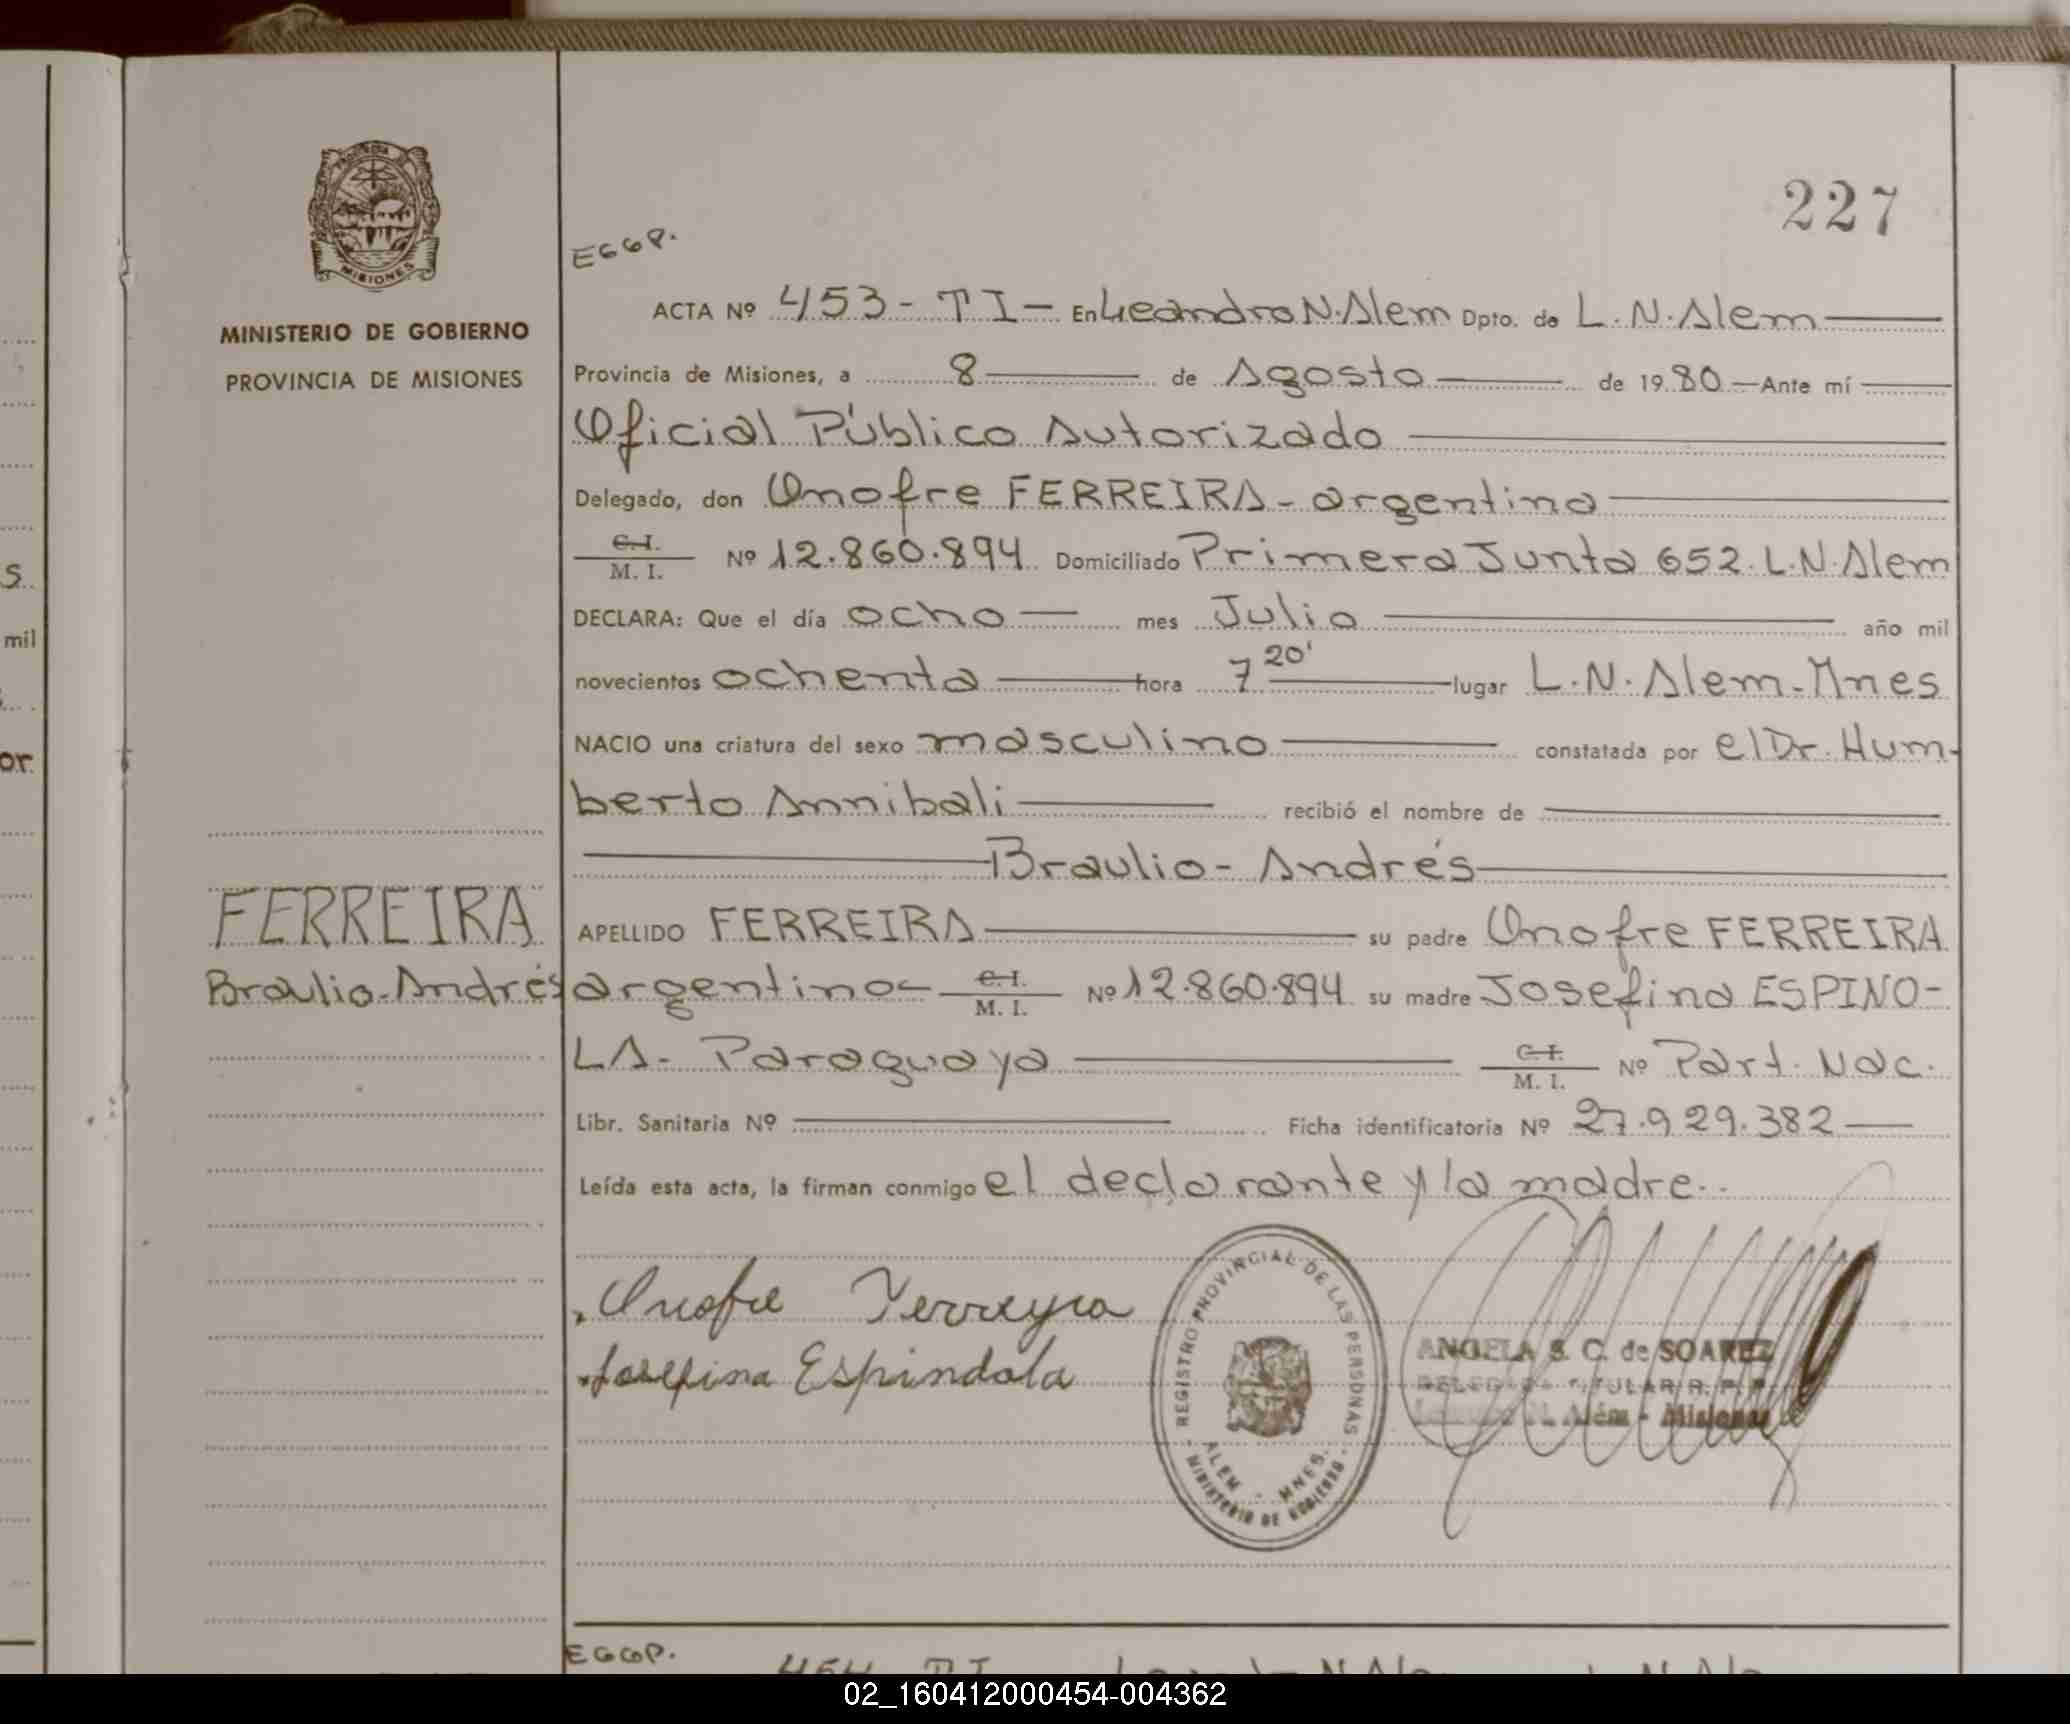 S.
mil
or.
PROVINCIA
MISIONES
MINISTERIO DE GOBIERNO
PROVINCIA DE MISIONES
227
EGGP.
ACTA Nº 453 - T I - En Leandro N. Alem Dpto. de L. N. Alem
Provincia de Misiones, a 8 de Agosto de 1980 Ante mí
Oficial Público Autorizado
Delegado, don Onofre FERREIRA - argentino
C.I. M. I. Nº 12.860.894 Domiciliado Primera Junta 652. L.N. Alem
DECLARA: Que el día ocho mes Julio año mil
novecientos ochenta hora 7 20' lugar L. N. Alem - Mnes
NACIO una criatura del sexo masculino constatada por el Dr. Hum-
berto Annibali recibió el nombre de
Braulio - Andrés
FERREIRA
Braulio - Andrés
APELLIDO FERREIRA su padre Onofre FERREIRA
argentino - C.I. M. I. Nº 12.860.894 su madre Josefina ESPINO-
LA - Paraguaya C.I. M. I. Nº Part. Nac.
Libr. Sanitaria Nº Ficha identificatoria Nº 27.929.382
Leída esta acta, la firman conmigo el declarante y la madre..
Onofre Ferreyra
Josefina Espindola
REGISTRO PROVINCIAL DE LAS PERSONAS
ALEM - MNES.
MINISTERIO DE GOBIERNO
ANGELA S. C. de SOAREZ
TITULAR R. P. P.
N. Além - Misiones
EGGP.
454 T I
02_160412000454-004362